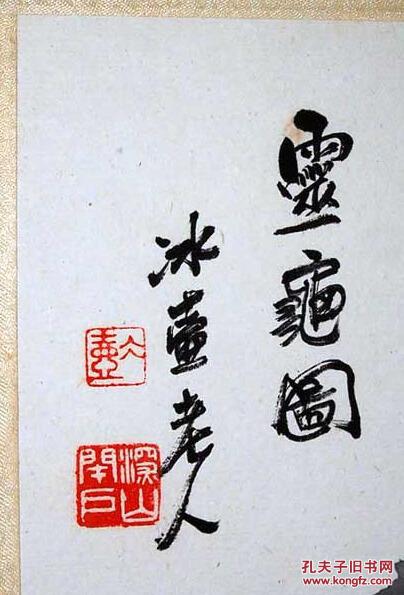 靈龜圖
冰壺老人
深山
閉户
孔夫子旧书网
www.kongfz.com